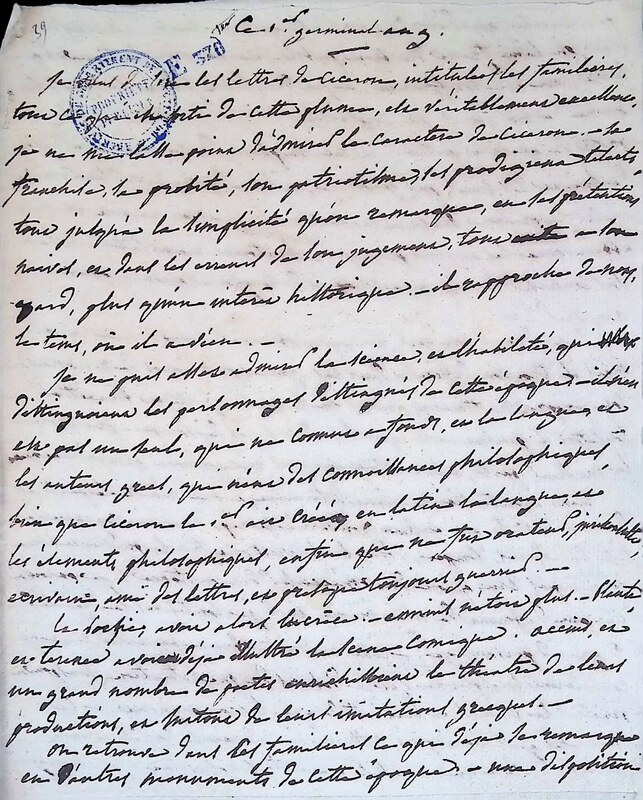 39
Ce 1er germinal an 9.
E 376
je viens de lire les lettres de Ciceron, intitulées les familieres,
tout ce qui est sorti de cette plume, est véritablement excellent
je ne me lasse point d'admirer le caractere de Ciceron. – la
franchise, la probité, son patriotisme, ses prodigieux talents
tout jusqu'à la simplicité qu'on remarque, en ses prétentions
naives, et dans les erreurs de son jugement, tout a son
égard, plus qu'un intérêt historique. – il rapproche de nous,
le tems, où il a vécu. –
Je ne puis assez admirer la science, et l'habileté, qui
distinguoient les personnages distingués de cette époque. – il n'en
est pas un seul, qui ne connut a fonds, et la langue, et
les auteurs grecs, qui n'eut des connoissances philosophiques,
bien que Ciceron le 1er ait créé, en latin la langue, et
les élements philosophiques, enfin qui ne fut orateur, jurisconsulte,
ecrivain, ami des lettres, et presque toujours guerrier. –
La poësie, avoit alors lucrèce. – ennius n'étoit plus. – Plaute,
et terence avoient déja illustré la scène comique. accius, et
un grand nombre de poëtes enrichissoient le théatre de leurs
productions, et surtout de leurs imitations grecques. –
On retrouve dans les familieres ce que déja je remarque
en d'autres monuments de cette époque. – une disposition